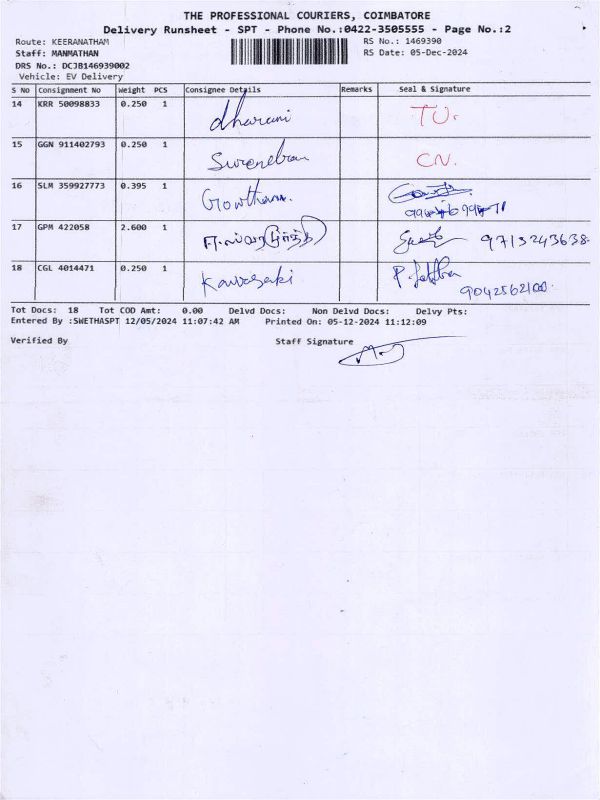 THE PROFESSIONAL COURIERS, COIMBATORE
Delivery Runsheet - SPT - Phone No.:0422-3505555 - Page No.:2
Route: KEERANATHAM RS No.: 1469390
Staff: MANMATHAN RS Date: 05-Dec-2024
DRS No.: DCJB146939002
Vehicle: EV Delivery
S No Consignment No Weight PCS Consignee Details Remarks Seal & Signature
14 KRR 50098833 0.250 1 dharani TU.
15 GGN 911402793 0.250 1 Surendran CN.
16 SLM 359927773 0.395 1 Gowtham.
17 GPM 422058 2.600 1 9713243638.
18 CGL 4014471 0.250 1 Kawasaki
9042562100.
Tot Docs: 18 Tot COD Amt: 0.00 Delvd Docs: Non Delvd Docs: Delvy Pts:
Entered By :SWETHASPT 12/05/2024 11:07:42 AM Printed On: 05-12-2024 11:12:09
Verified By Staff Signature